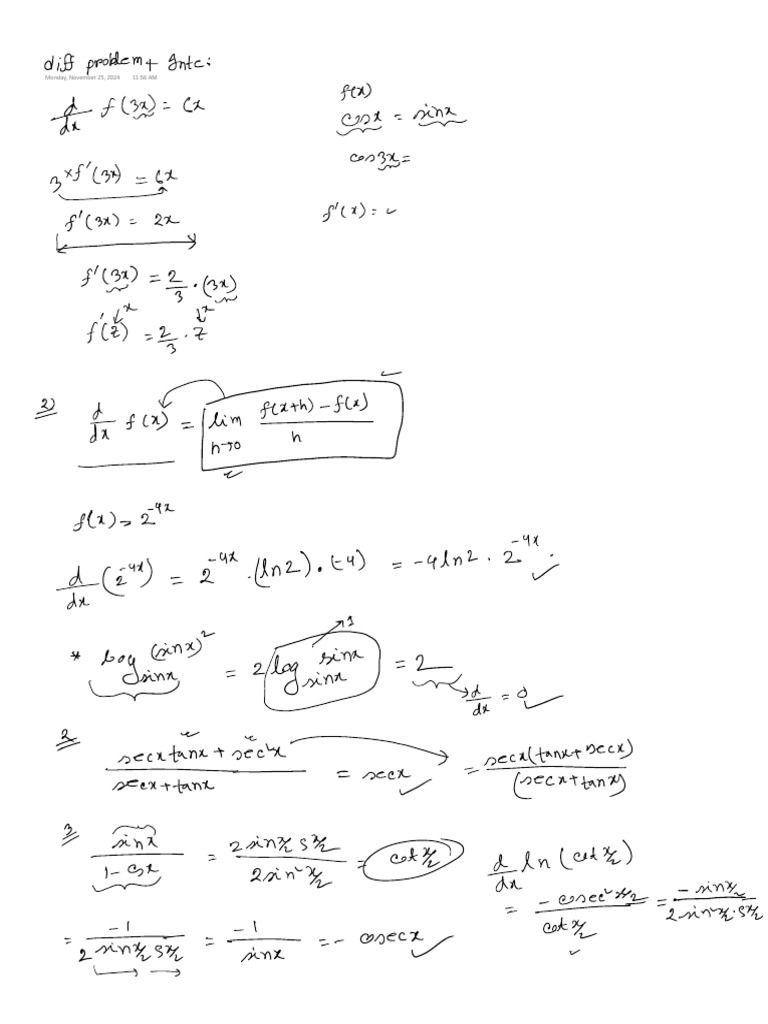 diff problem + Inte:
Monday, November 25, 2024 11:56 AM
d/dx f(3x) = 6x
f(x)
cosx = sinx
cos3x =
3 × f'(3x) = 6x
f'(3x) = 2x
f'(x) = ✓
f'(3x) = 2/3 · (3x)
x x
f'(z) = 2/3 · z
2) d/dx f(x) = lim h→0 f(x+h) – f(x) / h
f(x) = 2^-4x
d/dx (2^-4x) = 2^-4x · (ln2) · (-4) = -4ln2 · 2^-4x .
1
* log_sinx (sinx)^2 = 2 log_sinx sinx = 2
d/dx = 0
2 secx tanx + sec²x / secx + tanx = secx = secx(tanx + secx) / (secx + tanx)
3 sinx / 1 - cosx = 2 sin x/2 cos x/2 / 2 sin² x/2 = cot x/2
d/dx ln (cot x/2)
= - cosec² x/2 / cot x/2 = - sin x/2 / 2 sin² x/2 · cos x/2
= -1 / 2 sin x/2 cos x/2 = -1 / sinx = - cosecx